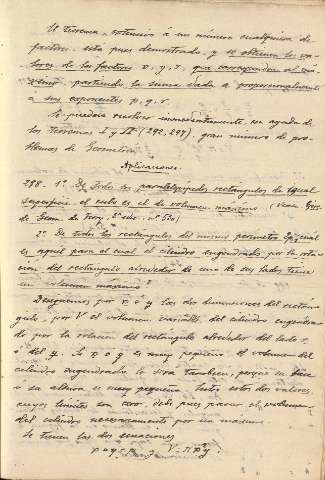 El teorema, extensivo á un número cualquiera de
factores, está pues demostrado, y se obtienen los va-
lores de los factores x, y, z, que corresponden al má-
ximo, partiendo la suma dada a proporcionalmente
á sus exponentes p, q, r.
Se puede resolver inmediatamente, con ayuda de
los teoremas I y II (292, 297), gran número de pro-
blemas de Geometría.
Aplicaciones.
298. 1º De todos los paralelepípedos rectángulos de igual
superficie, el cubo es el de volumen máximo (Vease
de Geom. de
2º De todos los rectángulos del mismo perímetro 2p, cuál
es aquel para el cual el cilindro engendrado por la rota-
ción del rectángulo alrededor de uno de sus lados tiene
un volumen máximo?
Designemos por x é y las dos dimensiones del rectán-
gulo, por V el volumen variable del cilindro engendra-
do por la rotación del rectángulo alrededor del lado
ó del y. Si x ó y es muy pequeño, el volumen del
cilindro engendrado lo será tambien, porque su base
ó su altura es muy pequeña. Entre estos dos valores,
cuyos límites son cero, debe pues pasar el volumen
del cilindro necesariamente por un máximo.
Se tienen las dos ecuaciones
x + y = p V = π x² y.